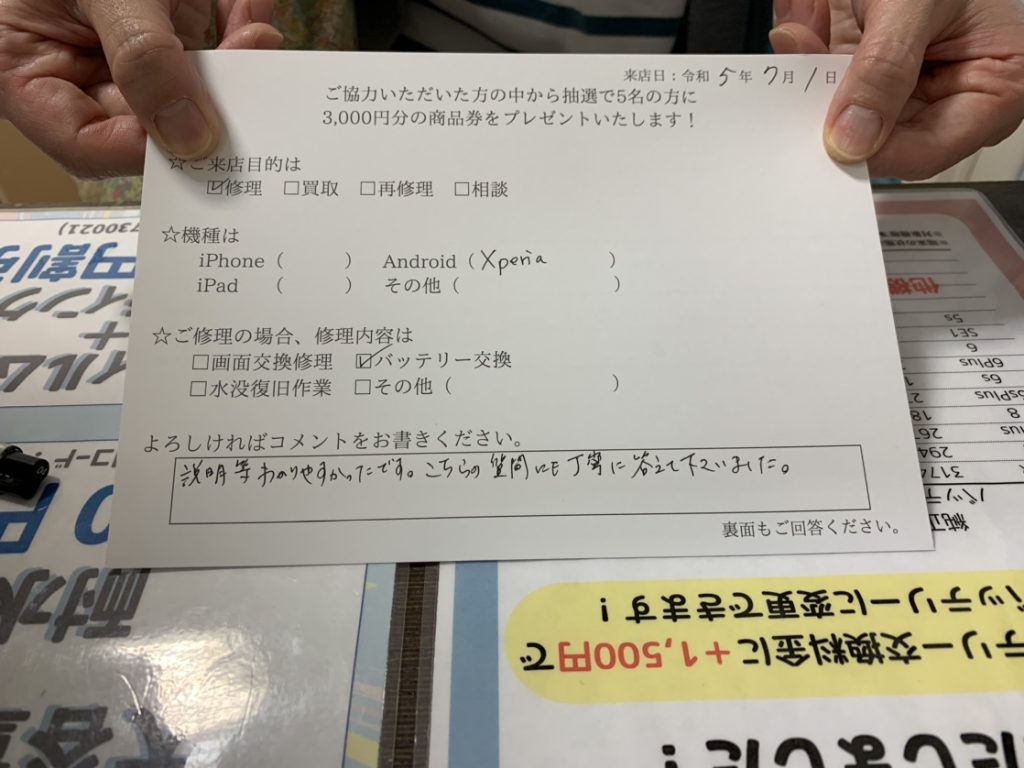 来店日：令和 5年 7月 1日
ご協力いただいた方の中から抽選で5名の方に
3,000円分の商品券をプレゼントいたします！
☆ご来店目的は
☑修理 □買取 □再修理 □相談
☆機種は
iPhone（ ） Android（Xperia ）
iPad （ ） その他（ ）
☆ご修理の場合、修理内容は
□画面交換修理 ☑バッテリー交換
□水没復旧作業 □その他（ ）
よろしければコメントをお書きください。
説明等わかりやすかったです。こちらの質問にも丁寧に答えて下さいました。
裏面もご回答ください。
730021)
円割引
耐水
5s
SE1
6
6Plus
6s
6sPlus
8
Plus
3174
バッテ
純正
テリー交換料金に+1,500円で
バッテリーに変更できます！
たしました！